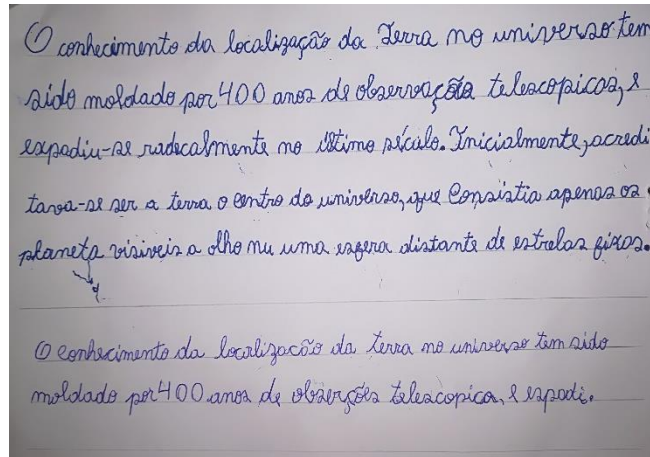 O conhecimento da localização da Terra no universo tem
sido moldado por 400 anos de observações telescopicas, e
expadiu-se radecalmente no último século. Inicialmente, acredi
tava-se ser a terra o centro do universo, que Consistia apenas os
planeta visiveis a olho nu uma esfera distante de estrelas fixas.
O conhecimento da localizacõo da terra no universo tem sido
moldado por 400 anos de obserções telescopica, e espadi.